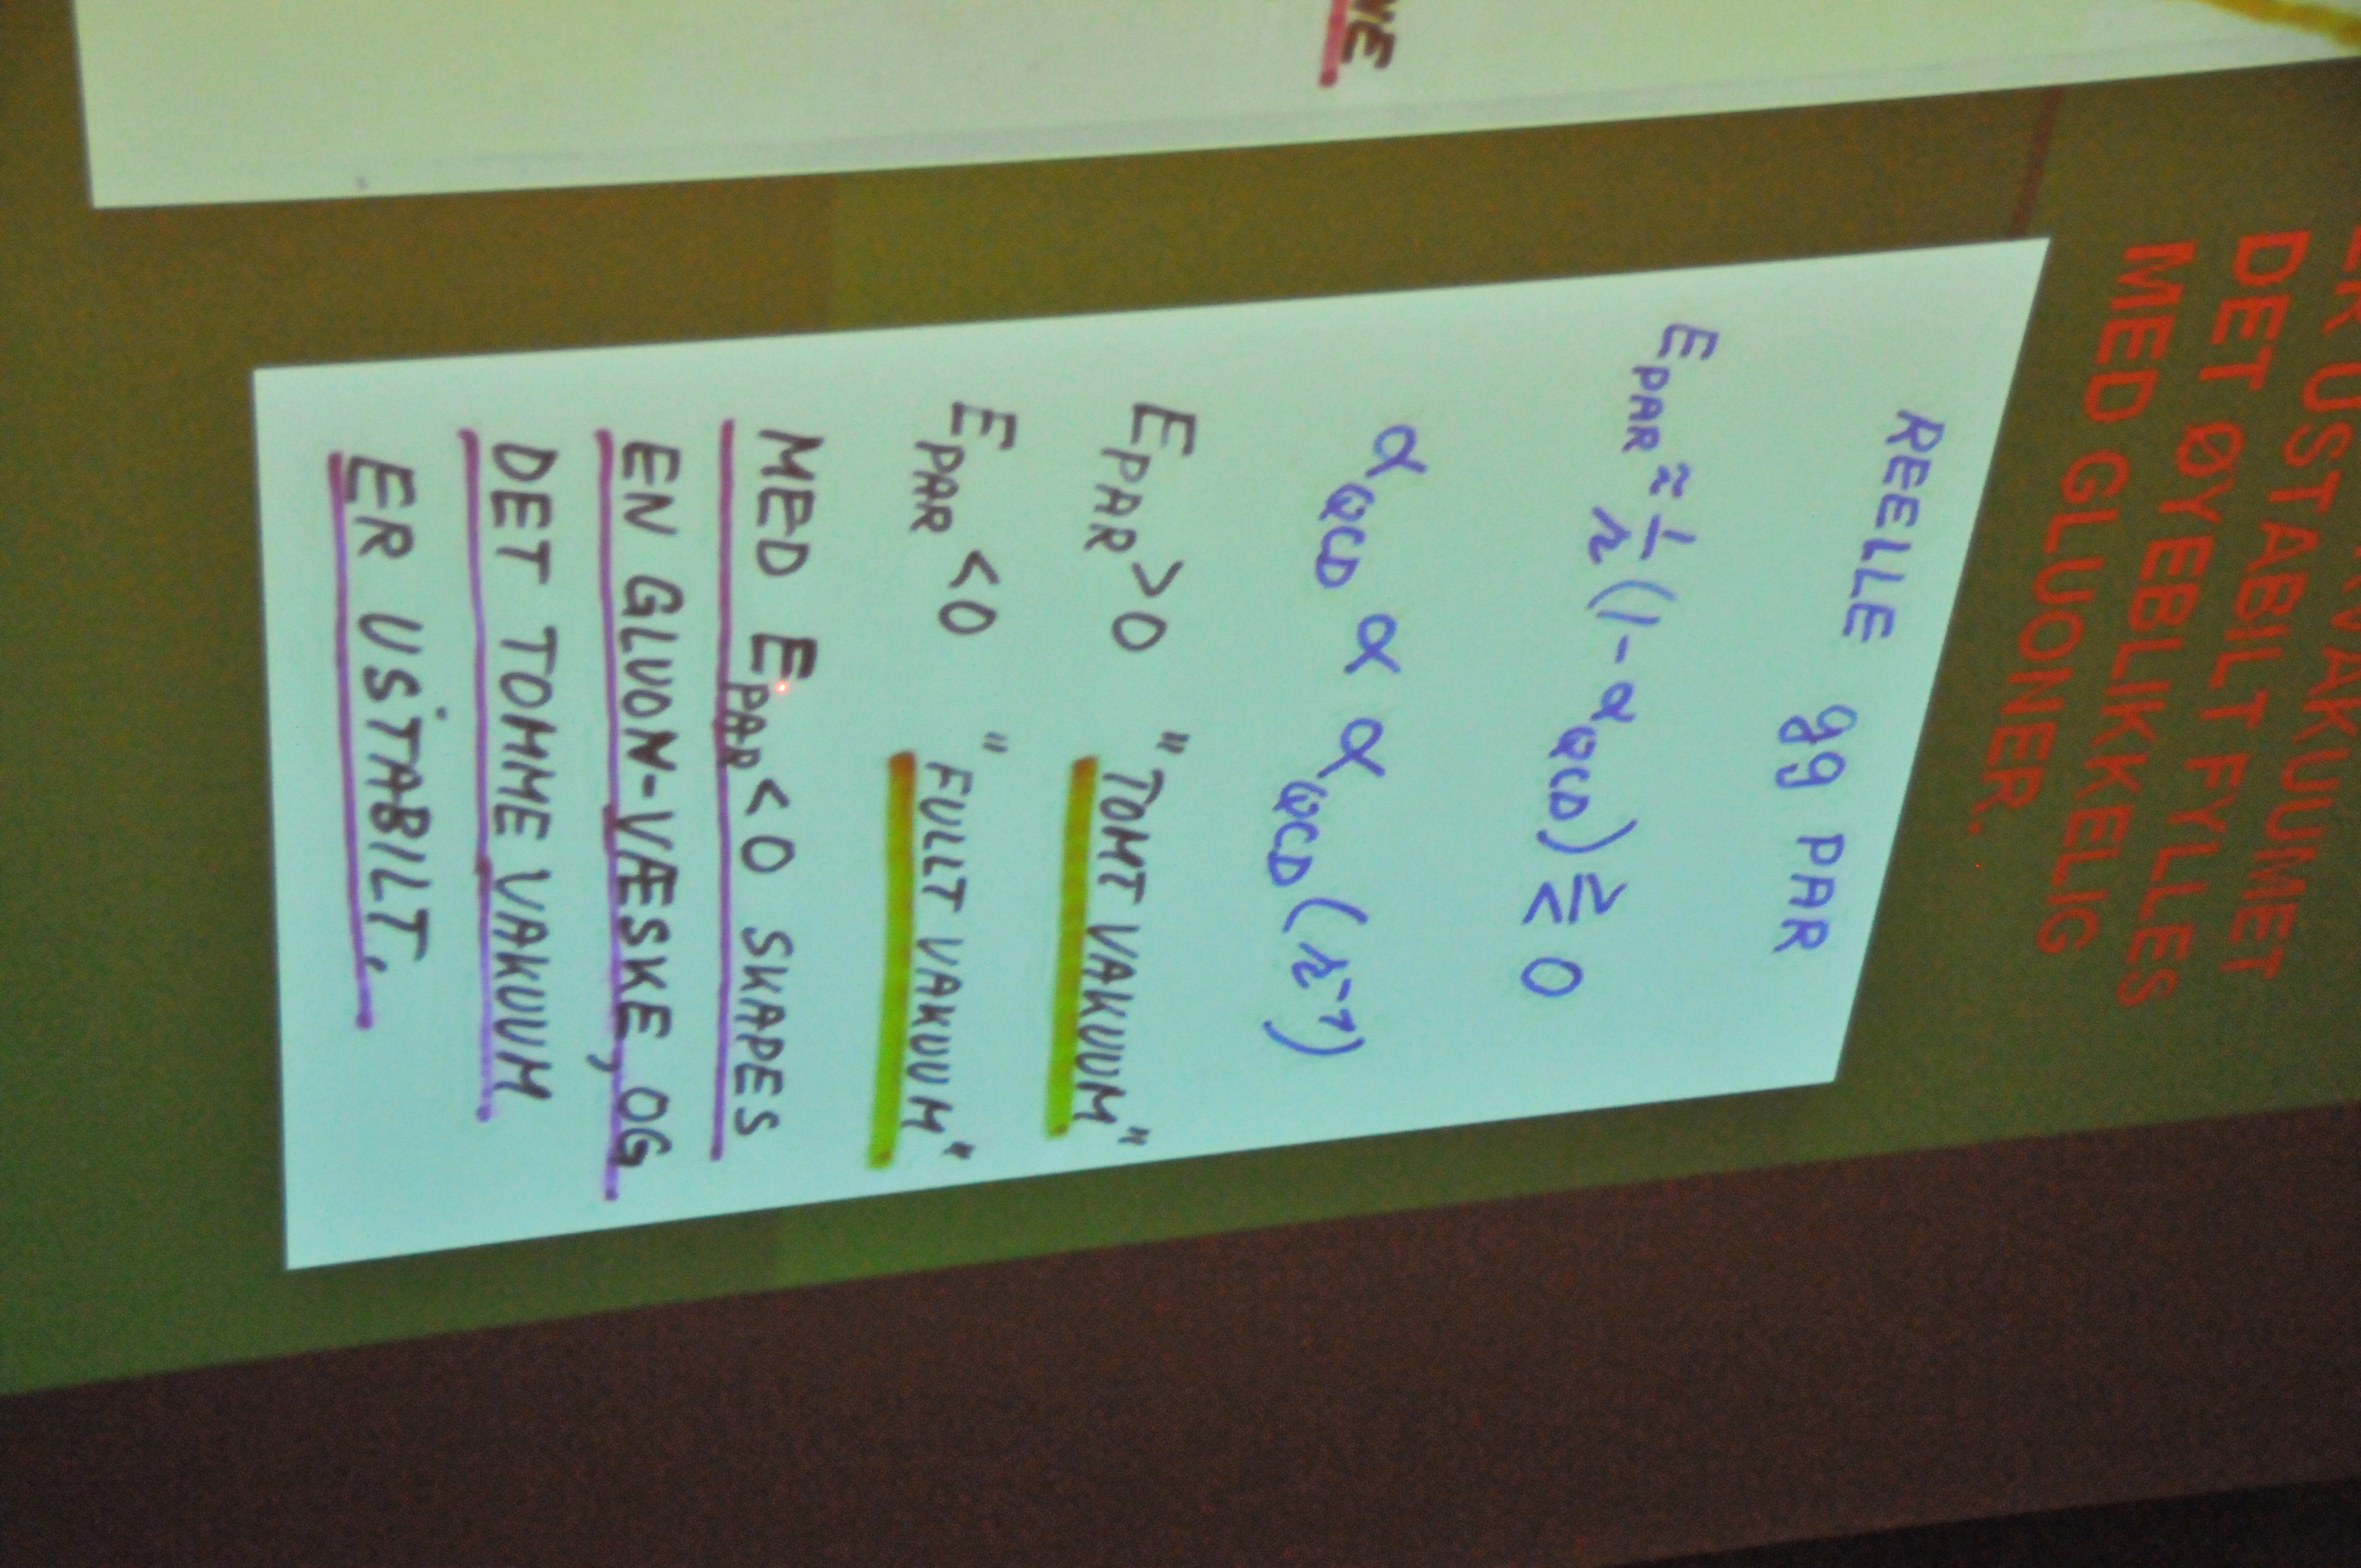 USTABILT VAKUUMET
DET ØYEBLIKKELIG FYLLES
MED GLUONER.
REELLE gg PAR
E_PAR ≈ 1/r (1 - α_QCD) ≷ 0
α_QCD α α_QCD (r⁻¹)
E_PAR > 0 "TOMT VAKUUM"
E_PAR < 0 "FULLT VAKUUM"
MED E_PAR < 0 SKAPES
EN GLUON-VÆSKE, OG
DET TOMME VAKUUM
ER USTABILT.